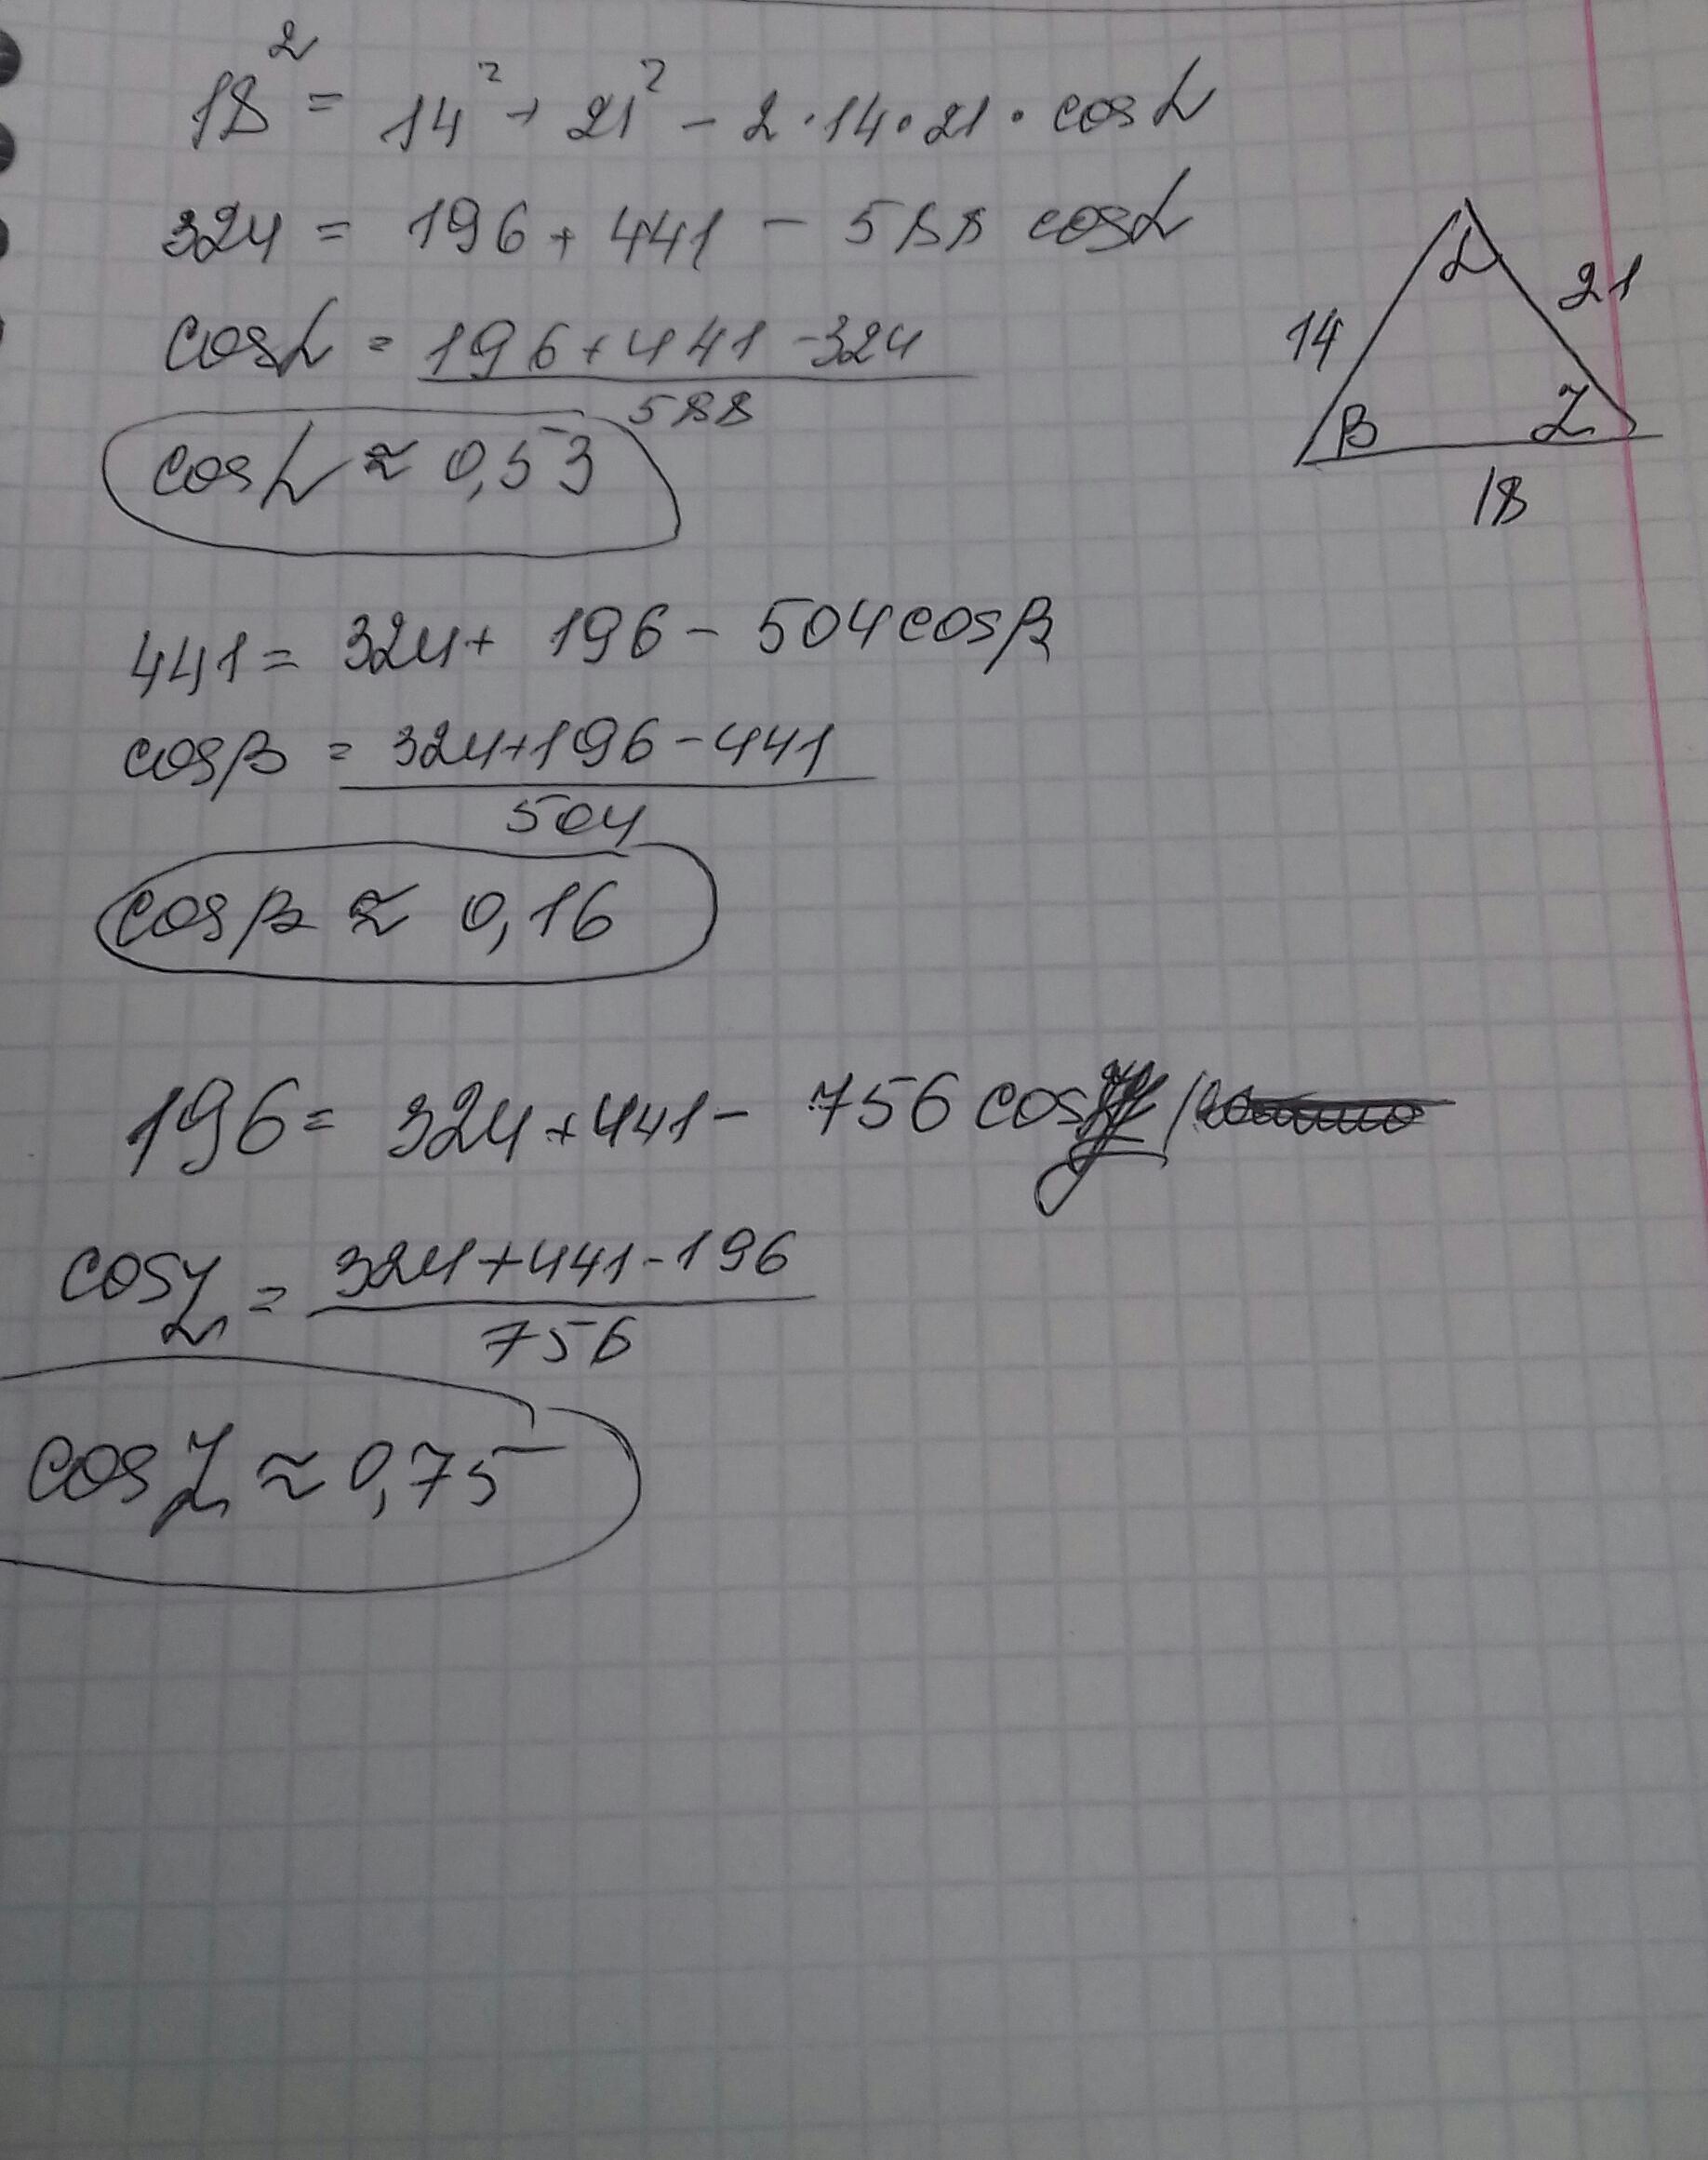 18² = 14² + 21² - 2 · 14 · 21 · cos α
324 = 196 + 441 - 588 cos α
cos α = (196 + 441 - 324) / 588
cos α ≈ 0,53
14
21
α
β
γ
18
441 = 324 + 196 - 504 cos β
cos β = (324 + 196 - 441) / 504
cos β ≈ 0,16
196 = 324 + 441 - 756 cos γ
cos γ = (324 + 441 - 196) / 756
cos γ ≈ 0,75